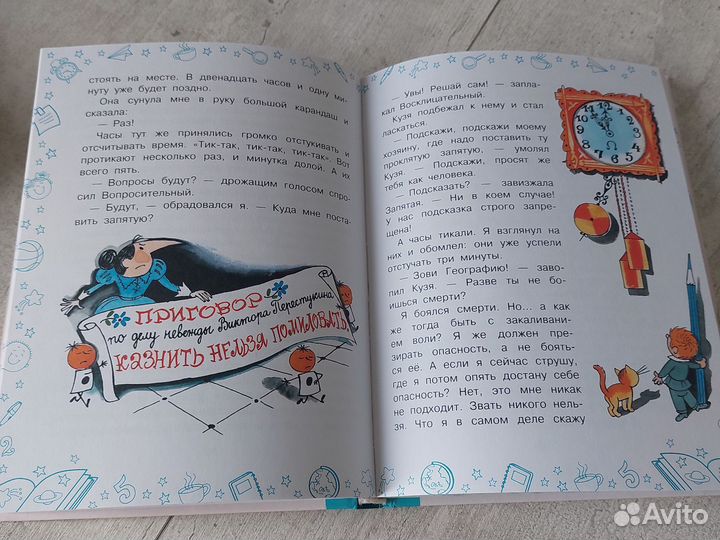 стоять на месте. В двенадцать часов и одну ми-
нуту уже будет поздно.
Она сунула мне в руку большой карандаш и
сказала:
— Раз!
Часы тут же принялись громко отстукивать и
отсчитывать время. «Тик-так, тик-так, тик-так». Вот
протикают несколько раз, и минутка долой. А их
всего пять.
— Вопросы будут? — дрожащим голосом спро-
сил Вопросительный.
— Будут, — обрадовался я. — Куда мне поста-
вить запятую?
ПРИГОВОР
по делу невежды Виктора Перестукина
КАЗНИТЬ НЕЛЬЗЯ ПОМИЛОВАТЬ
— Увы! Решай сам! — запла-
кал Восклицательный.
Кузя подбежал к нему и стал
ласкаться.
— Подскажи, подскажи моему
хозяину, где надо поставить ту
проклятую запятую, — умолял
Кузя. — Подскажи, просят же
тебя как человека.
— Подсказать? — завизжала
Запятая. — Ни в коем случае!
У нас подсказка строго запре-
щена!
А часы тикали. Я взглянул на
них и обомлел: они уже успели
отстучать три минуты.
— Зови Географию! — заво-
пил Кузя. — Разве ты не бо-
ишься смерти?
Я боялся смерти. Но... а как
же тогда быть с закаливани-
ем воли? Я же должен пре-
зирать опасность, а не боять-
ся её. А если я сейчас струшу,
где я потом опять достану себе
опасность? Нет, это мне никак
не подходит. Звать никого нель-
зя. Что я в самом деле скажу
Avito